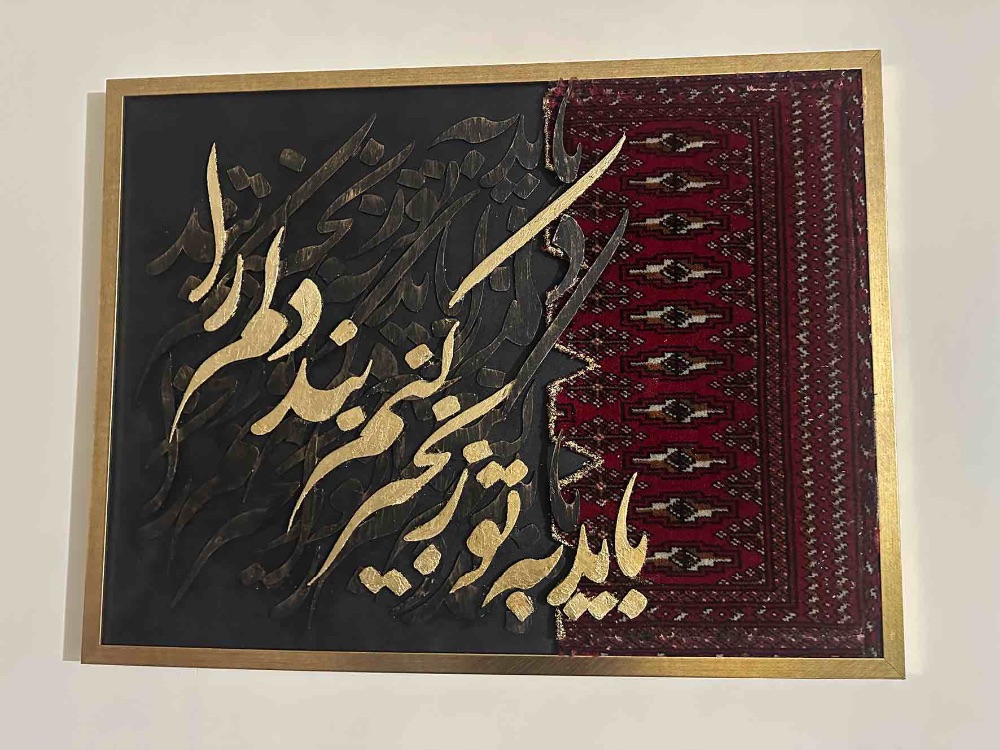 باید به تو زنجیر کنم بند دلم را